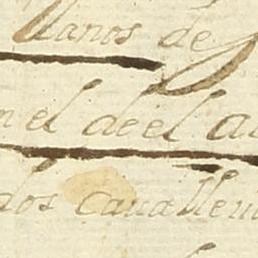 llanos de
n el de el a
dos cavalle